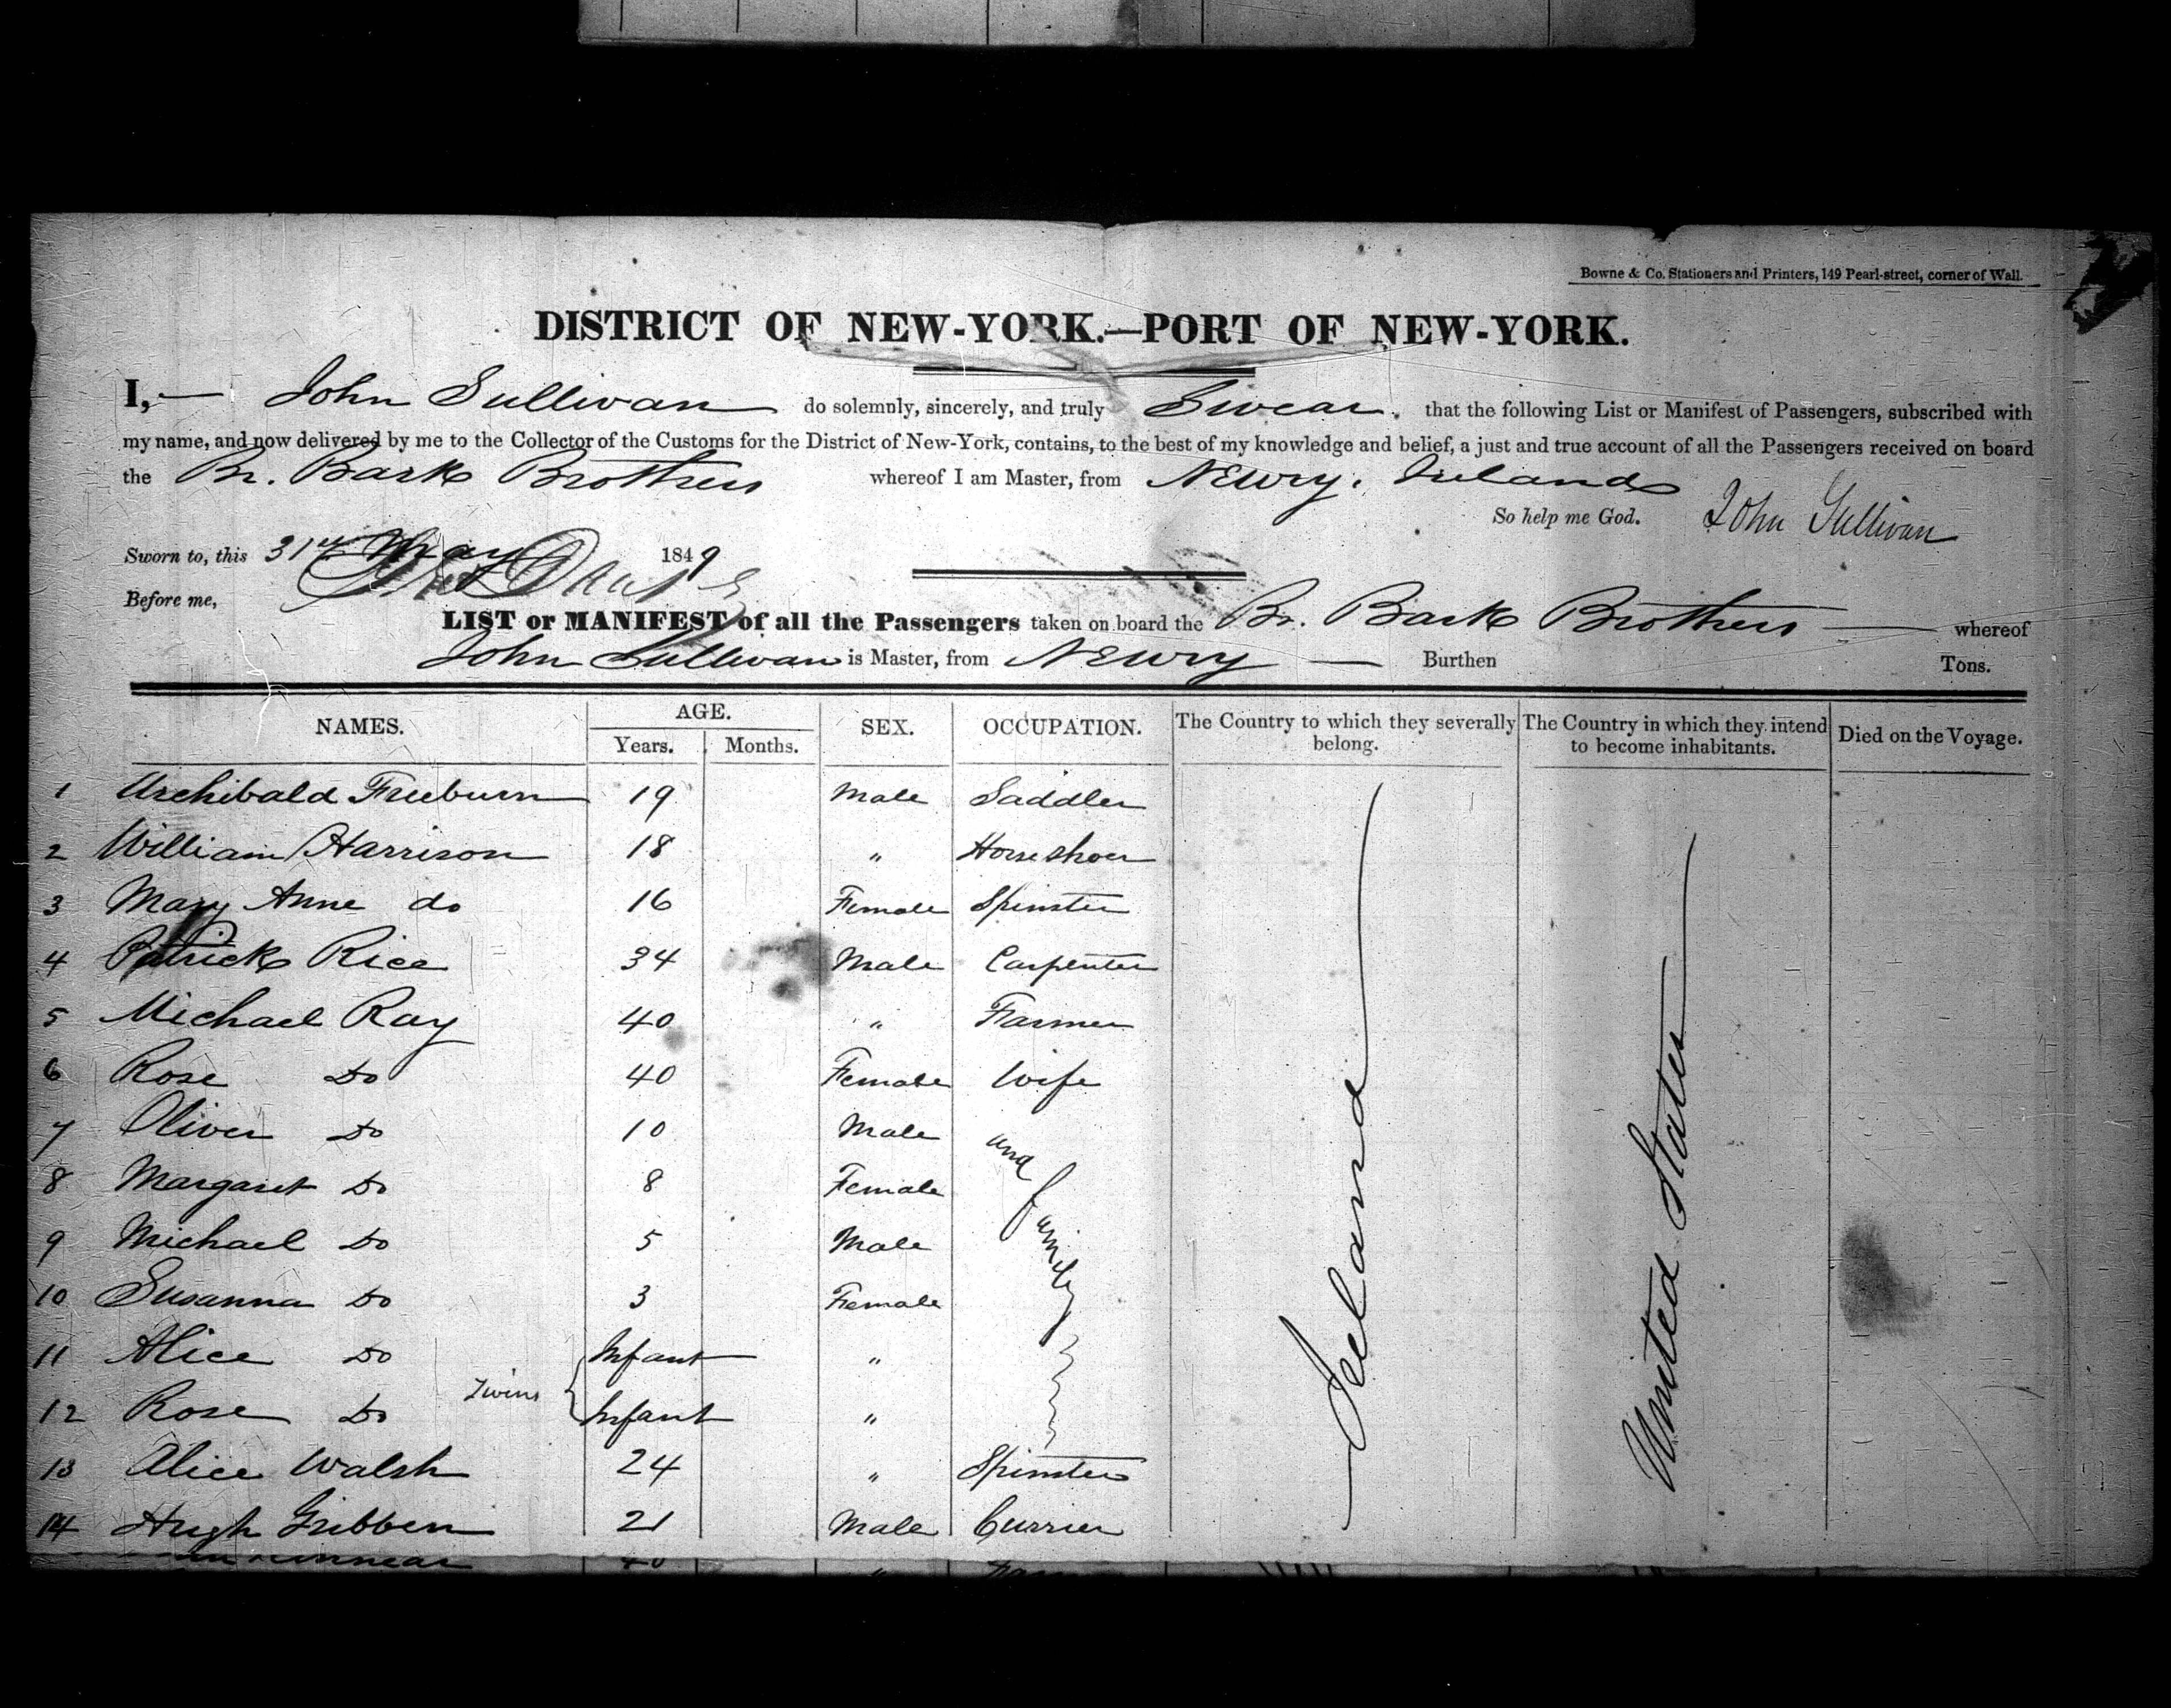 Bowne & Co. Stationers and Printers, 149 Pearl-street, corner of Wall.
DISTRICT OF NEW-YORK.—PORT OF NEW-YORK.
I,— John Sullivan do solemnly, sincerely, and truly Swear. that the following List or Manifest of Passengers, subscribed with
my name, and now delivered by me to the Collector of the Customs for the District of New-York, contains, to the best of my knowledge and belief, a just and true account of all the Passengers received on board
the Br. Bark Brothers whereof I am Master, from Newry. Ireland
So help me God. John Sullivan
Sworn to, this 31st May 1849
Before me,
LIST or MANIFEST of all the Passengers taken on board the Br. Bark Brothers — whereof
John Sullivan is Master, from Newry — Burthen Tons.
NAMES. AGE. SEX. OCCUPATION. The Country to which they severally belong. The Country in which they intend to become inhabitants. Died on the Voyage.
Years. Months.
1 Archibald Freeburn 19 Male Saddler
2 William Harrison 18 " Horseshoer
3 Mary Anne do 16 Female Spinster
4 Patrick Rice 34 Male Carpenter
5 Michael Ray 40 " Farmer
6 Rose Do 40 Female Wife
7 Oliver Do 10 Male and
8 Margaret Do 8 Female family
9 Michael Do 5 Male
10 Susanna Do 3 Female
11 Alice Do Infant "
Twins
12 Rose Do Infant "
13 Alice Walsh 24 " Spinster
14 Hugh Gribben 21 Male Currier
Ireland
United States